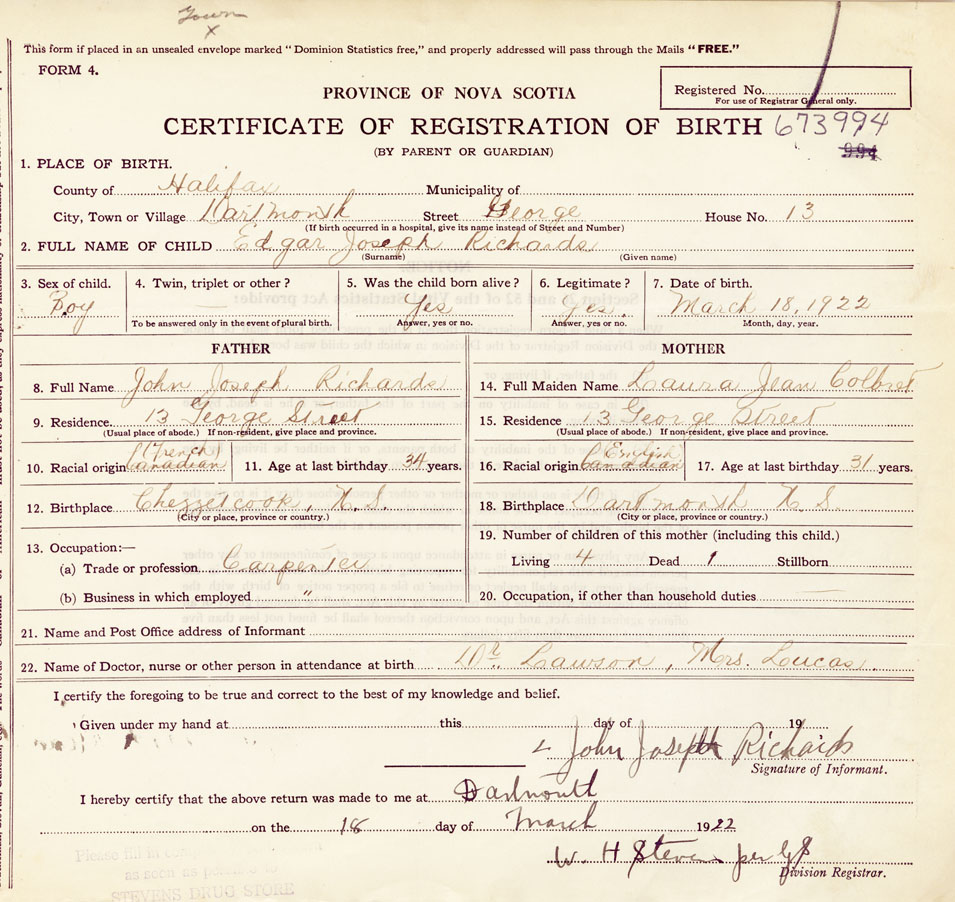 Town
x
This form if placed in an unsealed envelope marked "Dominion Statistics free," and properly addressed will pass through the Mails "FREE."
FORM 4.
Registered No.
For use of Registrar General only.
PROVINCE OF NOVA SCOTIA
CERTIFICATE OF REGISTRATION OF BIRTH 673994
(BY PARENT OR GUARDIAN)
994
1. PLACE OF BIRTH.
County of Halifax Municipality of
City, Town or Village Dartmouth Street George House No. 13
(If birth occurred in a hospital, give its name instead of Street and Number)
2. FULL NAME OF CHILD Edgar Joseph Richards
(Surname) (Given name)
3. Sex of child. 4. Twin, triplet or other? 5. Was the child born alive? 6. Legitimate? 7. Date of birth.
Boy — Yes Yes. March 18, 1922
To be answered only in the event of plural birth. Answer, yes or no. Answer, yes or no. Month, day, year.
FATHER MOTHER
8. Full Name John Joseph Richards 14. Full Maiden Name Laura Jean
9. Residence. 13 George Street 15. Residence. 13 George Street
(Usual place of abode.) If non-resident, give place and province. (Usual place of abode.) If non-resident, give place and province.
(French) (English)
10. Racial origin Canadian 11. Age at last birthday 34 years. 16. Racial origin Canadian 17. Age at last birthday 31 years.
12. Birthplace Chezzetcook, N.S. 18. Birthplace Dartmouth N.S.
(City or place, province or country.) (City or place, province or country.)
13. Occupation:— 19. Number of children of this mother (including this child.)
(a) Trade or profession Carpenter Living 4 Dead 1 Stillborn
(b) Business in which employed " 20. Occupation, if other than household duties —
21. Name and Post Office address of Informant
22. Name of Doctor, nurse or other person in attendance at birth Dr. Lawson, Mrs. Lucas.
I certify the foregoing to be true and correct to the best of my knowledge and belief.
Given under my hand at this day of 19
John Joseph Richards
Signature of Informant.
I hereby certify that the above return was made to me at Dartmouth
on the 18 day of March 1922
W. H Stevens per
Division Registrar.
Please fill in
as seen as
STEVENS DRUG STORE